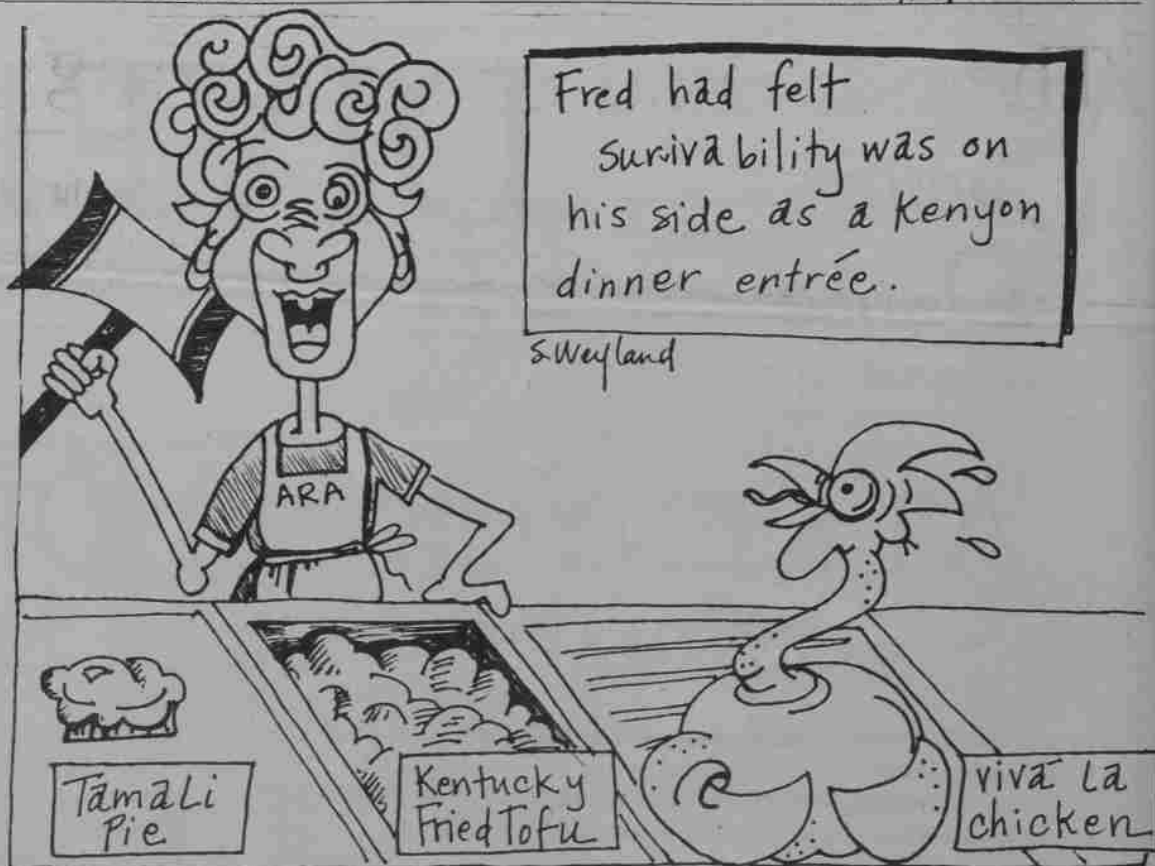 Fred had felt
surivability was on
his side as a Kenyon
dinner entrée.
S. Weyland
ARA
Tamali
Pie
Kentucky
Fried Tofu
viva la
chicken